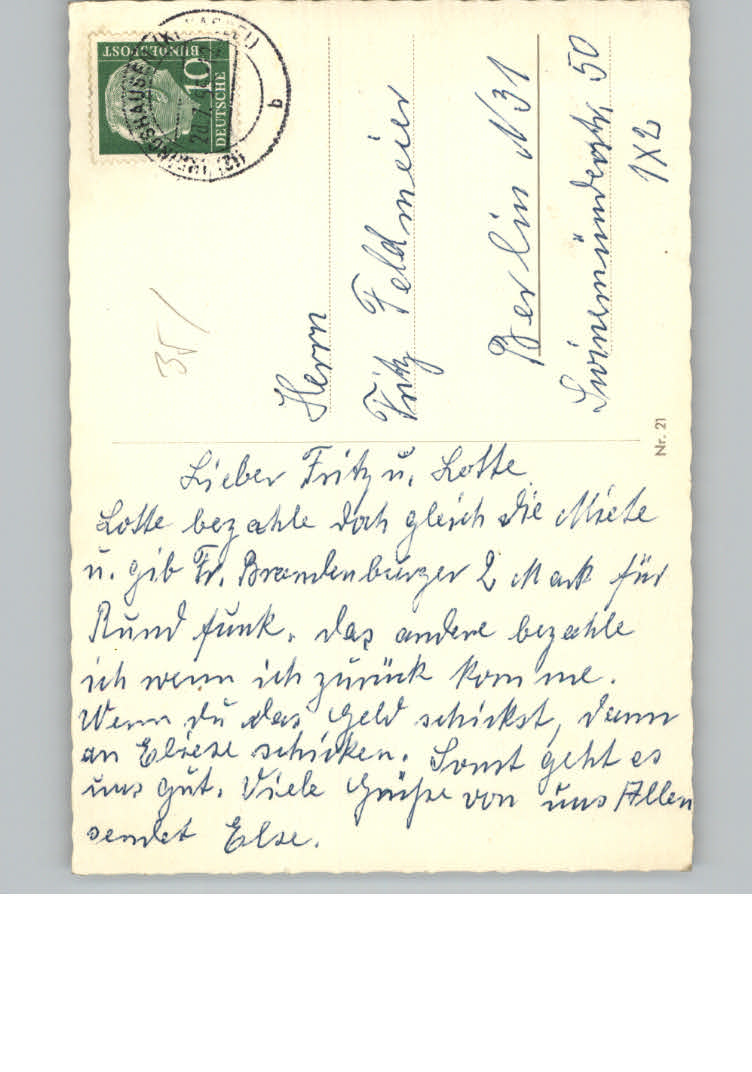 Lieber Fritz u. Lotte
Lotte bezahle doch gleich die Miete
u. gib Fr. Brandenburger 2 Mark für
Rundfunk. das andere bezahle
ich wenn ich zurück komme.
Wenn du das Geld schickst, dann
an Eliese schicken. Sonst geht es
uns gut. Viele Grüße von uns Allen
sendet Else.
Herrn
Fritz Feldmeier
Berlin N 31
Swinemünderstr. 50
1X2
35/
Nr. 21
DEUTSCHE
BUNDESPOST
10
b